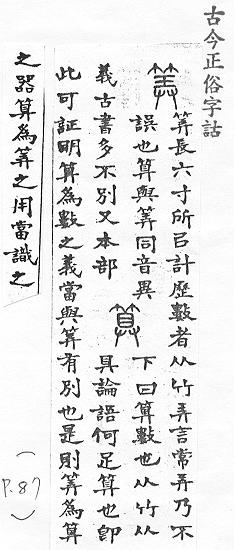 古今正俗字詁
筭 筭長六寸所㠯計歷數者从竹弄言常弄乃不
誤也算與筭同音異
義古書多不別又本部
算
下曰算數也从竹从
具論語何足算也卽
此可証明算為數之義當與筭有別也是則筭為算
之器算為筭之用當識之
(P.87)